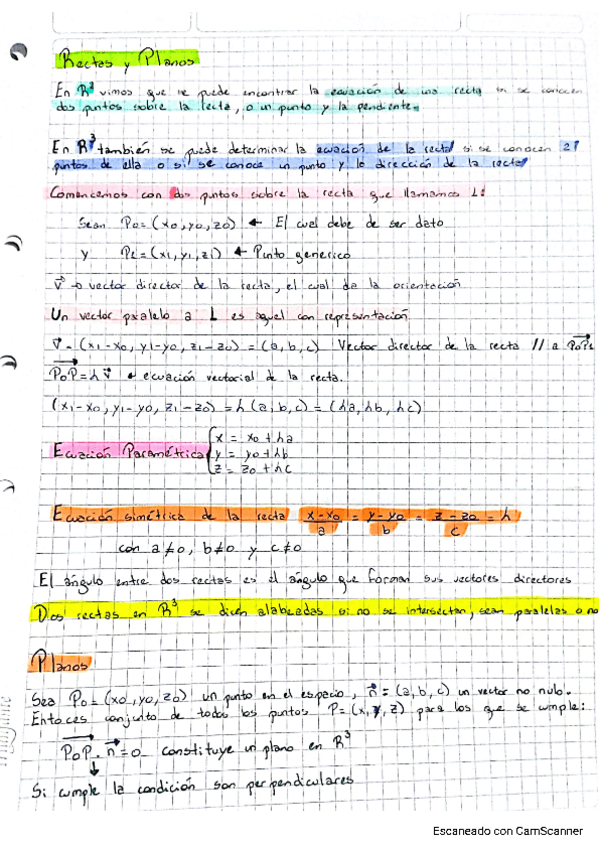 Rectas y Planos
En R² vimos que se puede encontrar la ecuación de una recta si se conocen
dos puntos sobre la recta, o un punto y la pendiente.
En R³ también se puede determinar la ecuación de la recta si se conocen 2
puntos de ella o si se conoce un punto y la dirección de la recta
Comencemos con dos puntos sobre la recta que llamamos L:
Sean P₀ = (x₀, y₀, z₀) ← El cual debe de ser dato
y P₁ = (x₁, y₁, z₁) ← Punto generico
v⃗ → vector director de la recta, el cual da la orientación
Un vector paralelo a L es aquel con representación
v⃗ = (x₁-x₀, y₁-y₀, z₁-z₀) = (a, b, c) Vector director de la recta // a P₀P₁
P₀P = h v⃗ ← ecuación vectorial de la recta.
(x₁-x₀, y₁-y₀, z₁-z₀) = h (a, b, c) = (ha, hb, hc)
x = x₀ + ha
Ecuación Paramétrica y = y₀ + hb
z = z₀ + hc
Ecuación simétrica de la recta x-x₀/a = y-y₀/b = z-z₀/c = h
con a≠0, b≠0 y c≠0
El ángulo entre dos rectas es el ángulo que forman sus vectores directores
Dos rectas en R³ se dicen alabeadas si no se intersectan, sean paralelas o no
Planos
Sea P₀ = (x₀, y₀, z₀) un punto en el espacio, n⃗ = (a, b, c) un vector no nulo.
Entonces conjunto de todos los puntos P = (x, y, z) para los que se cumple:
P₀P · n⃗ = 0 constituye un plano en R³
↓
Si cumple la condición son perpendiculares
Escaneado con CamScanner